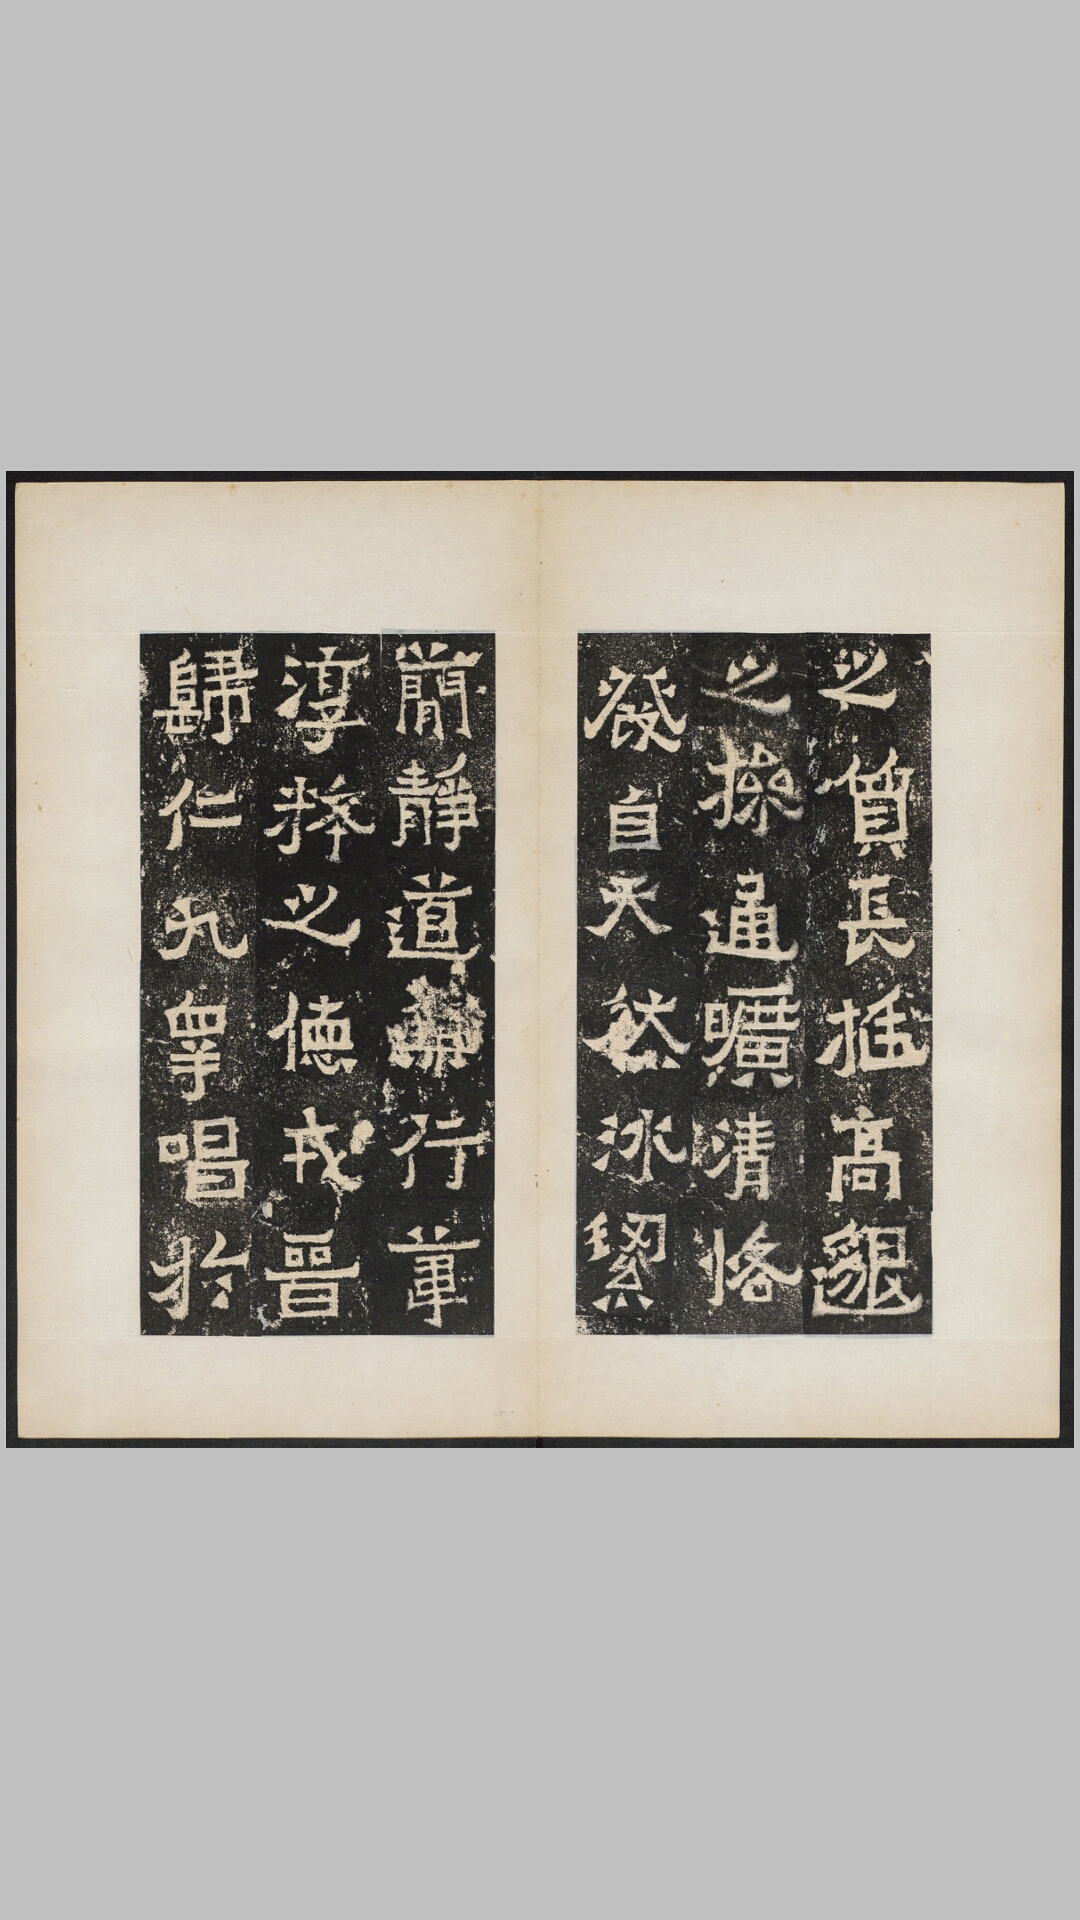 之質長挺高邈
之操通曠清恪
發自天然冰絜
簡靜道兼行葦
淳粹之德戎晉
歸仁九皋唱於